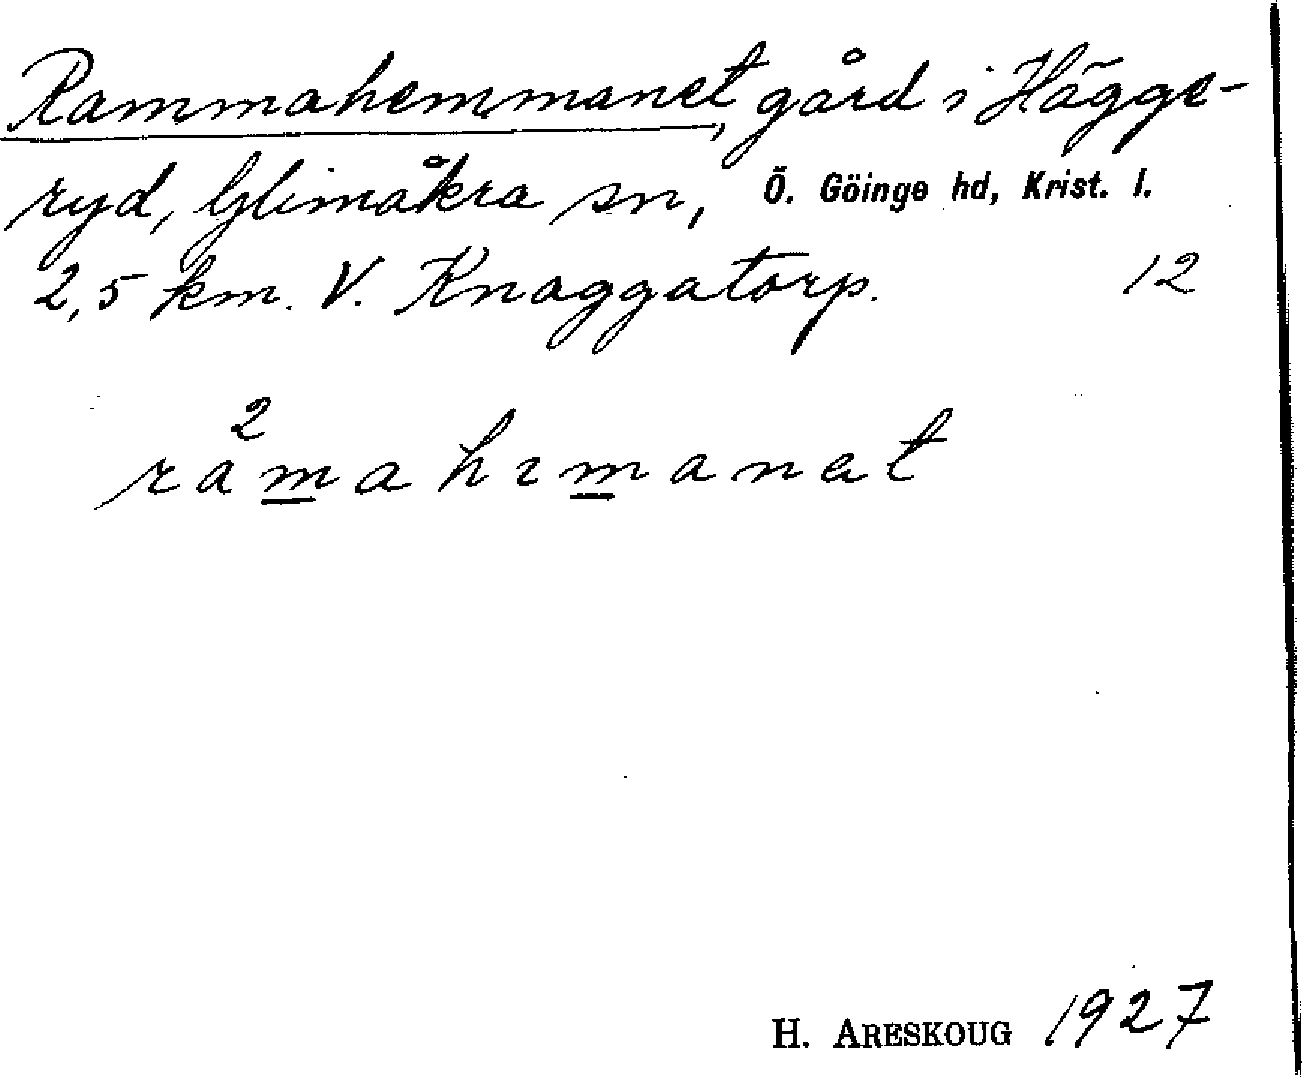 Rammahemmanet, gård i Hägge-
ryd, Glimåkra sn, Ö. Göinge hd, Krist. l.
2,5 km. V. Knaggatorp. 12
ra²mahɛmanət
H. ARESKOUG 1927